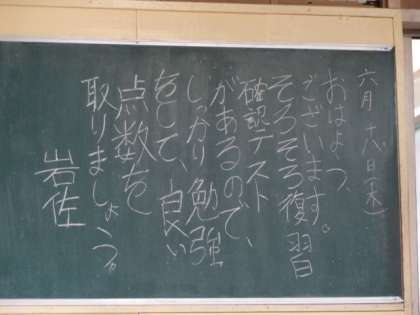 六月十八日(木)
おはようございます。
そろそろ復習
確認テスト
があるので、
しっかり勉強
をして、良い
点数を
取りましょう。
岩佐